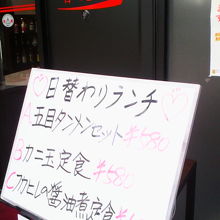 ♡日替わりランチ♡
A五目タンメンセット¥580
Bカニ玉定食¥580
Cフカヒレの醤油煮定食¥